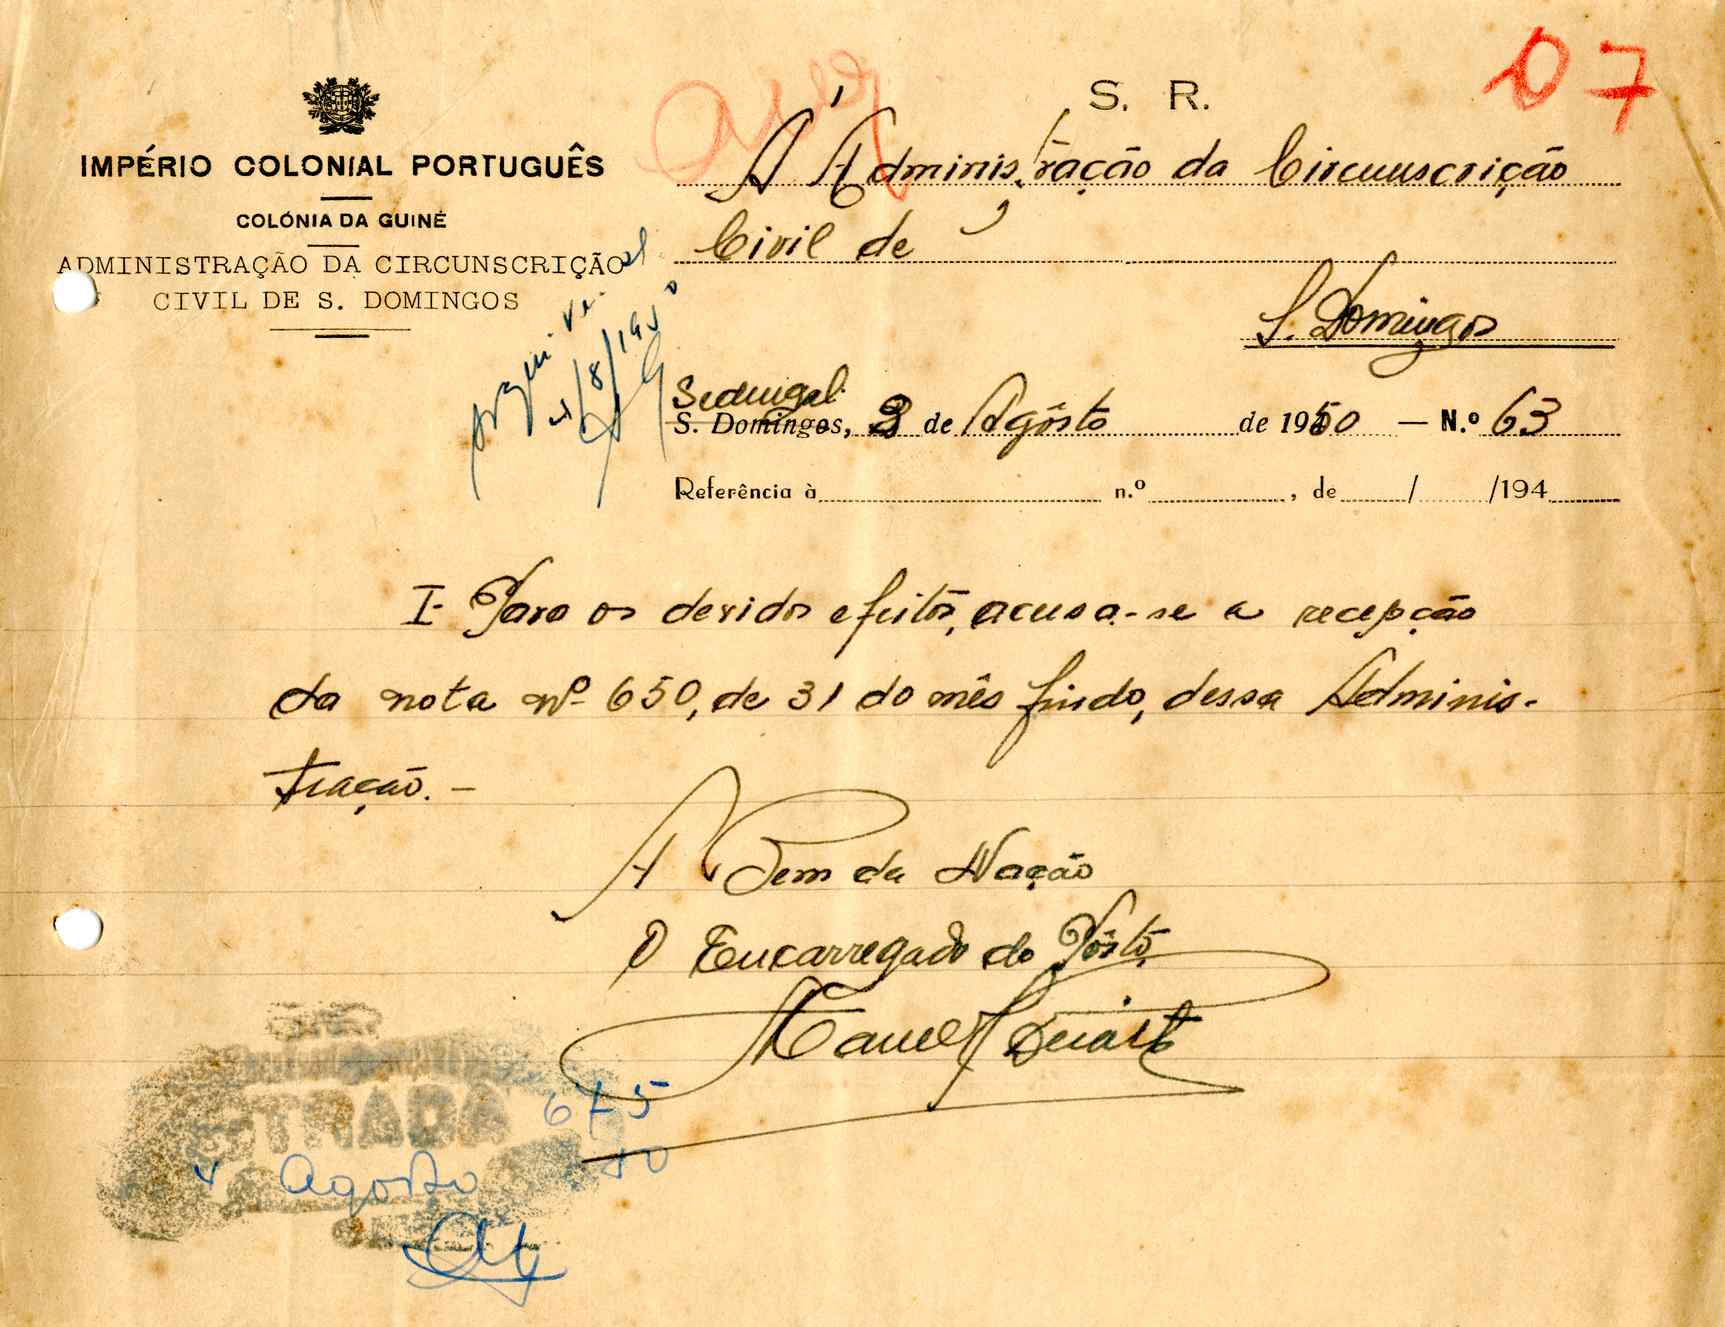 07
S. R.
IMPÉRIO COLONIAL PORTUGUÊS
COLÓNIA DA GUINÉ
ADMINISTRAÇÃO DA CIRCUNSCRIÇÃO
CIVIL DE S. DOMINGOS
À Administração da Circunscrição
Civil de
S. Domingos
4/8/1950
Sedengal
S. Domingos, 3 de Agôsto de 1950 — N.º 63
Referência à n.º , de / /194
I- Para os devidos efeitos, acusa-se a recepção
da nota nº 650, de 31 do mês findo, dessa Adminis-
tração. -
A Bem da Nação
O Encarregado do Pôsto,
Manuel Duarte
675
4 Agosto 50